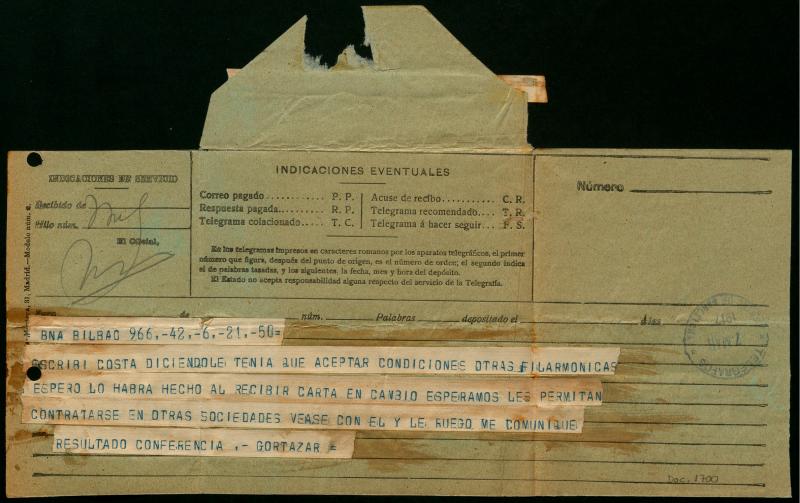 INDICACIONES DE SERVICIO
Recibido de
Hilo núm.
El Oficial,
INDICACIONES EVENTUALES
Correo pagado........... P. P.
Respuesta pagada........ R. P.
Telegrama colacionado.... T. C.
Acuse de recibo........... C. R.
Telegrama recomendado.... T. R.
Telegrama á hacer seguir.... F. S.
En los telegramas impresos en caracteres romanos por los aparatos telegráficos, el primer
número que figura, después del punto de origen, es el número de orden; el segundo indica
el de palabras tasadas, y los siguientes, la fecha, mes y hora del depósito.
El Estado no acepta responsabilidad alguna respecto del servicio de la Telegrafía.
Número
31, Madrid.—Modelo núm. 2.
de núm. Palabras depositado el á las
BNA BILBAO 966,-42,-6,-21,-50=
ESCRIBI COSTA DICIENDOLE TENIA QUE ACEPTAR CONDICIONES OTRAS FILARMONICAS
ESPERO LO HABRA HECHO AL RECIBIR CARTA EN CAMBIO ESPERAMOS LES PERMITAN
CONTRATARSE EN OTRAS SOCIEDADES VEASE CON EL Y LE RUEGO ME COMUNIQUE
RESULTADO CONFERENCIA ,- GORTAZAR =
TELEGRAFOS
Doc. 1700